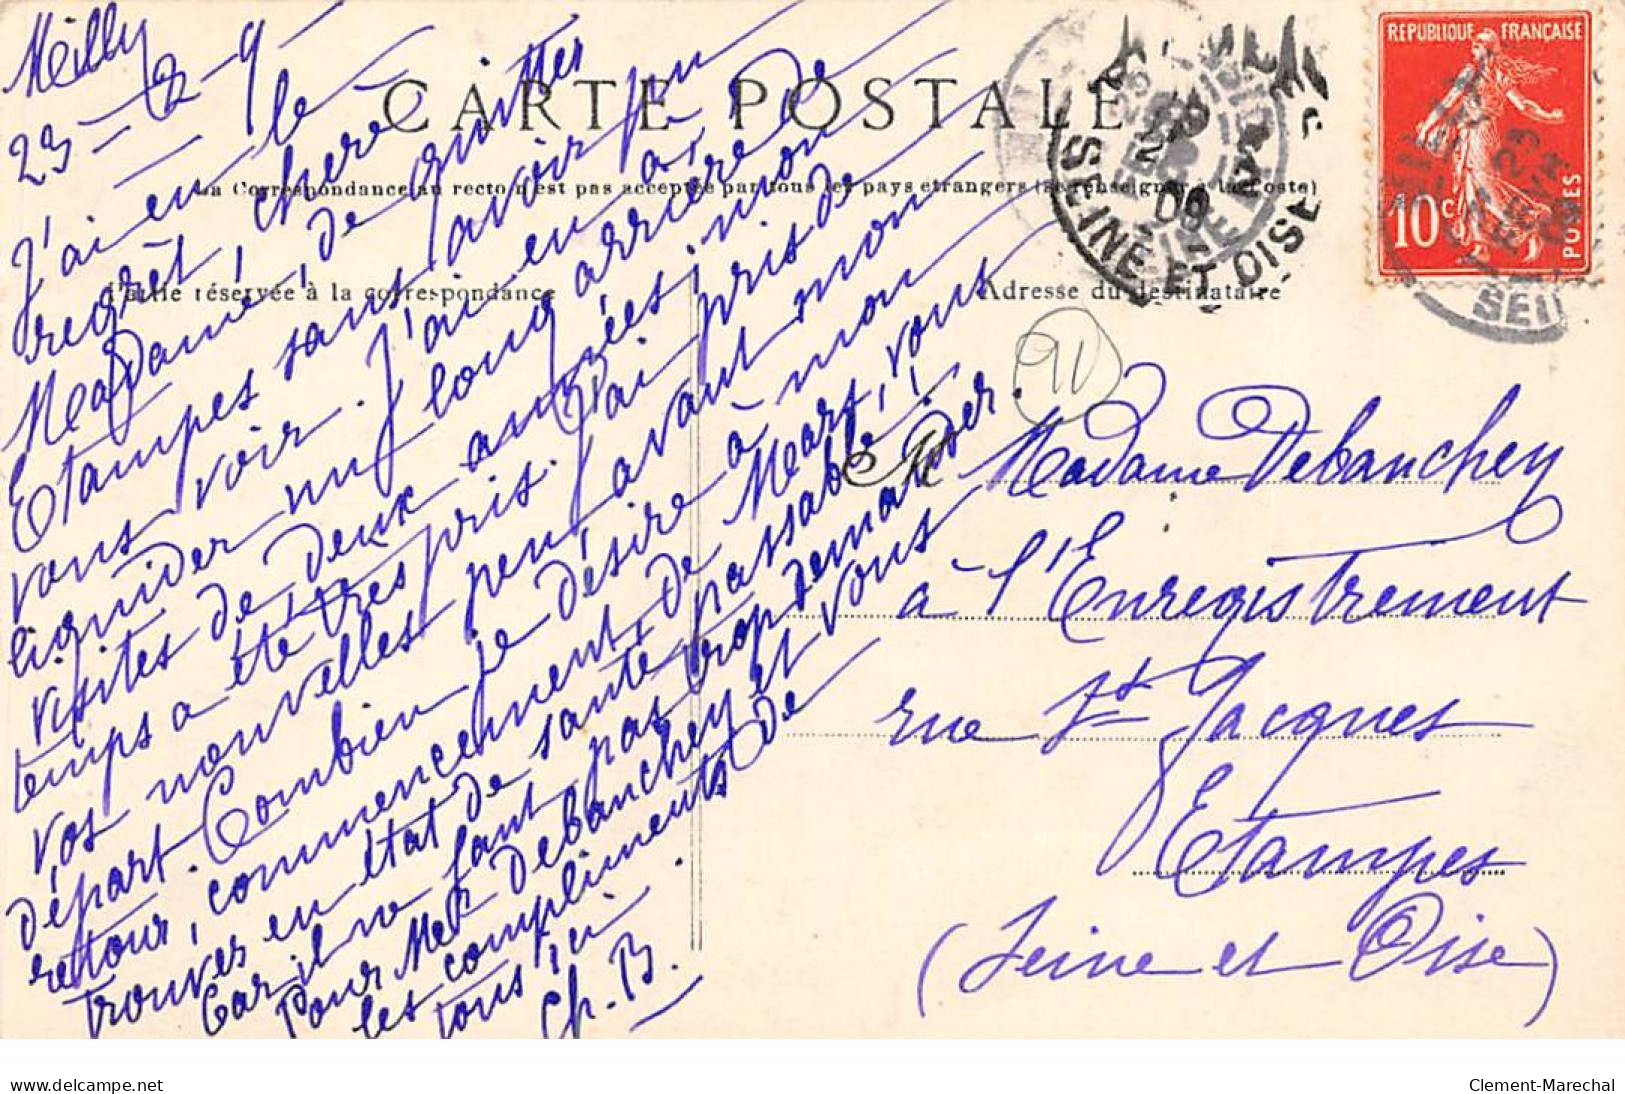 Milly
23-2-9
J'ai eu le
regrêt, chère
Madame, de quitter
Etampes sans avoir pu
vous voir. J'ai eu à
liquider un long arriéré de
visites de deux années ; mon
temps a été très pris. J'ai pris de
vos nouvelles peu avant mon
départ. Combien je désire à mon
retour, commencement de Mars, vous
trouver en état de santé passable !
Car il ne faut pas trop demander.
Pour Mr Debanchey et vous
les compliments de
tous ici.
Ch. B.
CARTE POSTALE
La Correspondance au recto n'est pas acceptée par tous les pays étrangers (se renseigner à la Poste)
Partie réservée à la correspondance
Adresse du destinataire
REPUBLIQUE FRANÇAISE
10 c
POSTES
SEINE ET OISE
09
23
SEI
91
Madame Debanchey
à l'Enregistrement
rue St Jacques
Etampes
(Seine et Oise)
www.delcampe.net
Clement-Marechal